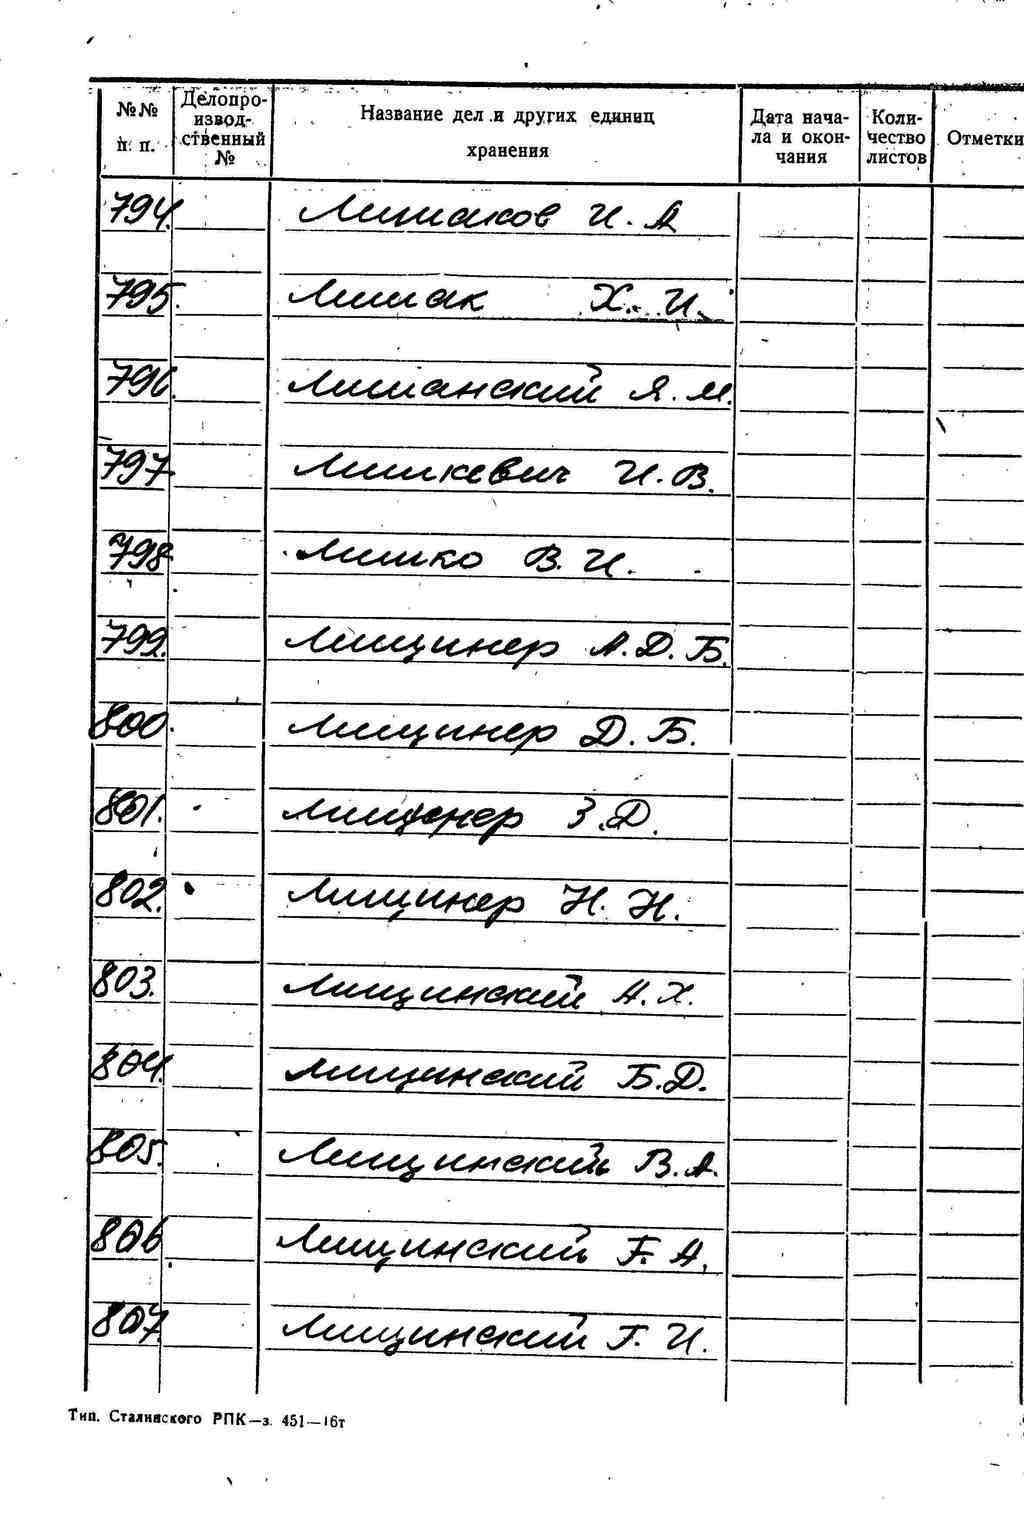 №№ п. п. Делопроизводственный № Название дел и других единиц хранения Дата начала и окончания Количество листов Отметки
794. Лишаков И. А
795. Лишак Х. И.
796. Лишанский Я. М.
797. Лишкевич И. В.
798. Лишко В. И.
799. Лищинер А. Д. Б.
800. Лищинер Д. Б.
801. Лищинер З. Д.
802. Лищинер Н. Н.
803. Лищинский А. Х.
804. Лищинский Б. Д.
805. Лищинский В. А.
806 Лищинский Г. А.
807. Лищинский Г. И.
Тип. Сталинского РПК—з. 451—16т